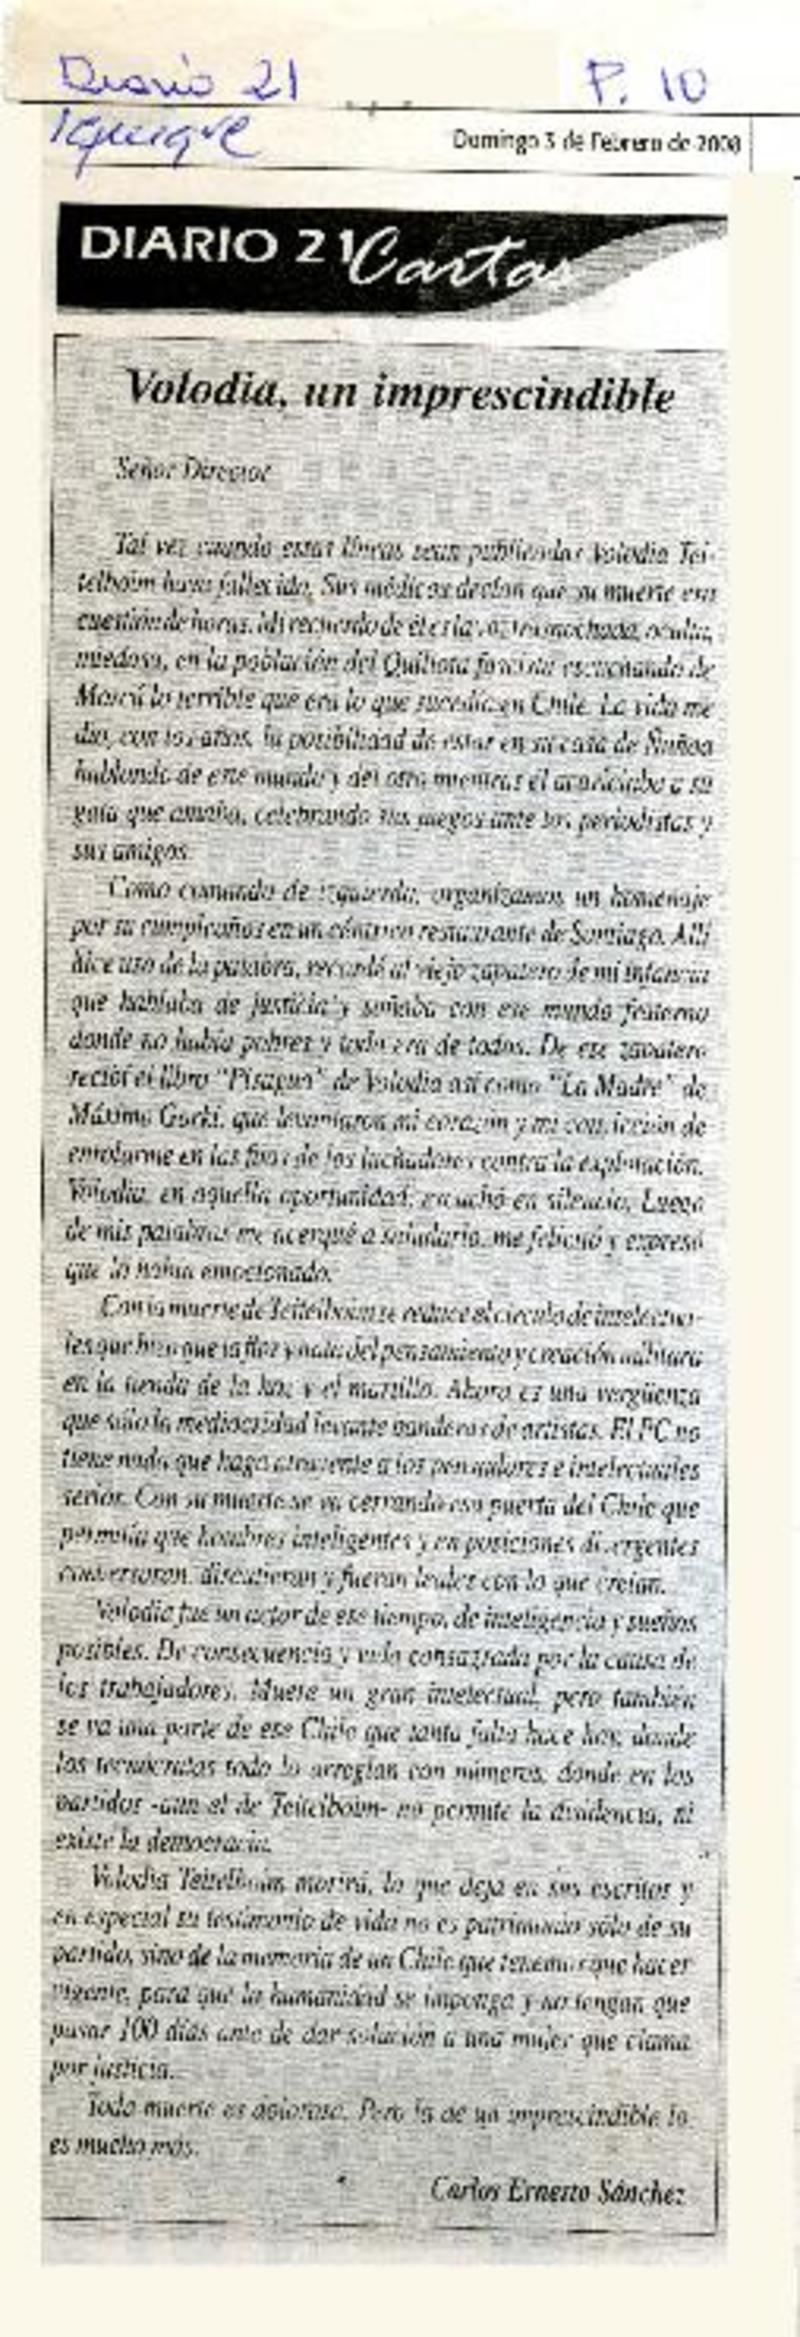 Diario 21 P. 10
Iquique
Domingo 3 de Febrero de 2008
DIARIO 21 Cartas
Volodia, un imprescindible
Señor Director
Tal vez cuando estas líneas sean publicadas Volodia Tei-
telboim haya fallecido. Sus médicos decían que su muerte era
cuestión de horas. Mi recuerdo de él es la voz trasnochada, oculta,
miedosa, en la población del Quillota fascista escuchando de
Moscú lo terrible que era lo que sucedía en Chile. La vida me
dio, con los años, la posibilidad de estar en su casa de Ñuñoa
hablando de este mundo y del otro mientras él acariciaba a su
gata que amaba, celebrando sus juegos ante los periodistas y
sus amigos.
Como comando de izquierda, organizamos un homenaje
por su cumpleaños en un céntrico restaurante de Santiago. Allí
hice uso de la palabra, recordé al viejo zapatero de mi infancia
que hablaba de justicia y soñaba con ese mundo fraterno
donde no había pobres y todo era de todos. De ese zapatero
recibí el libro "Pisagua" de Volodia así como "La Madre" de
Máximo Gorki, que levantaron mi corazón y mi convicción de
enrolarme en las filas de los luchadores contra la explotación.
Volodia, en aquella oportunidad, escuchó en silencio. Luego
de mis palabras me acerqué a saludarlo, me felicitó y expresó
que lo había emocionado.
Con la muerte de Teitelboim se reduce el círculo de intelectua-
les que hizo que la flor y nata del pensamiento y creación militara
en la tienda de la hoz y el martillo. Ahora es una vergüenza
que sólo la mediocridad levante banderas de artistas. El PC no
tiene nada que haga atrayente a los pensadores e intelectuales
serios. Con su muerte se va cerrando esa puerta del Chile que
permitía que hombres inteligentes y en posiciones divergentes
conversaran, discutieran y fueran leales con lo que creían.
Volodia fue un actor de ese tiempo, de inteligencia y sueños
posibles. De consecuencia y vida consagrada por la causa de
los trabajadores. Muere un gran intelectual, pero también
se va una parte de ese Chile que tanta falta hace hoy, donde
los tecnócratas todo lo arreglan con números, donde en los
partidos -aun el de Teitelboim- no permite la disidencia, ni
existe la democracia.
Volodia Teitelboim morirá, lo que deja en sus escritos y
en especial su testimonio de vida no es patrimonio sólo de su
partido, sino de la memoria de un Chile que tenemos que hacer
vigente, para que la humanidad se imponga y no tengan que
pasar 100 días ante de dar solución a una mujer que clama
por justicia.
Toda muerte es dolorosa. Pero la de un imprescindible lo
es mucho más.
Carlos Ernesto Sánchez